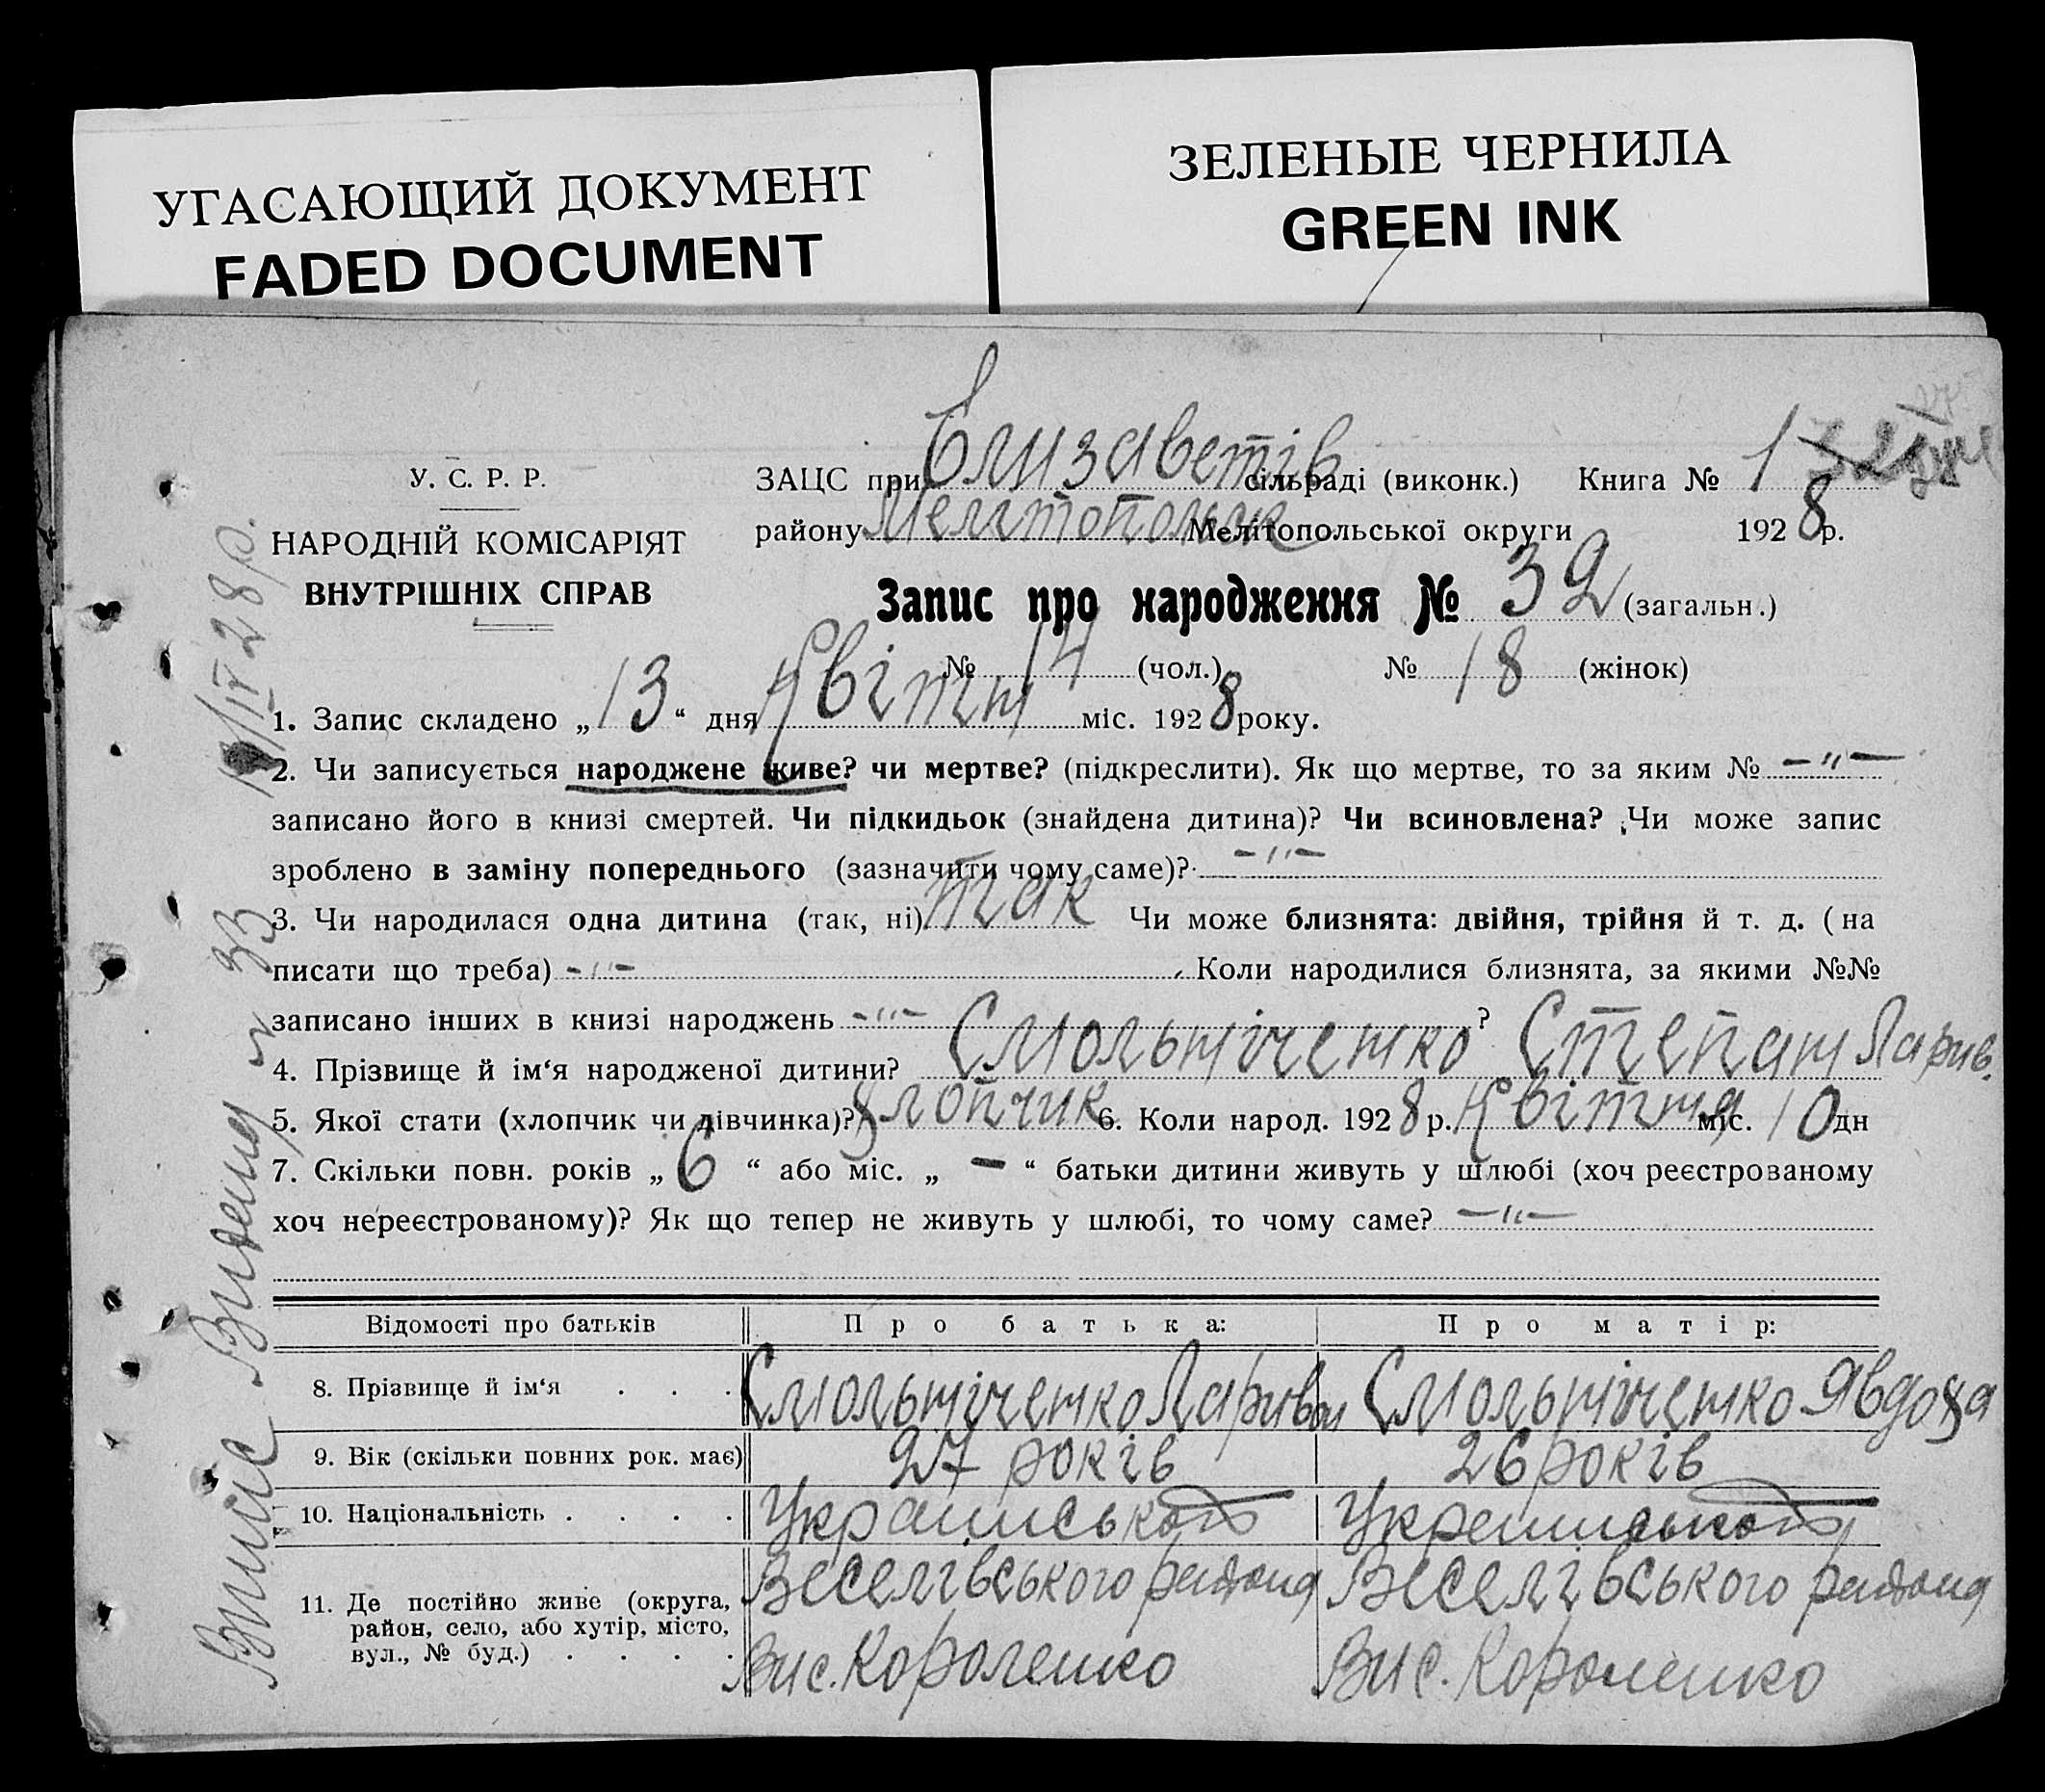 УГАСАЮЩИЙ ДОКУМЕНТ
FADED DOCUMENT
ЗЕЛЕНЫЕ ЧЕРНИЛА
GREEN INK
У. С. Р. Р.
НАРОДНІЙ КОМІСАРІЯТ
ВНУТРІШНІХ СПРАВ
ЗАЦС при Елизаветів сільраді (виконк.) Книга № 1
району Мелітопольськ Мелітопольської округи 1928р.
Запис про народження № 32 (загальн.)
№ 14 (чол.) № 18 (жінок)
1. Запис складено „13“ дня Квітня міс. 1928 року.
2. Чи записується народжене живе? чи мертве? (підкреслити). Як що мертве, то за яким № -"-
записано його в книзі смертей. Чи підкидьок (знайдена дитина)? Чи всиновлена? Чи може запис
зроблено в заміну попереднього (зазначити чому саме)? -"-
3. Чи народилася одна дитина (так, ні) так Чи може близнята: двійня, трійня й т. д. (на
писати що треба) -"- Коли народилися близнята, за якими №№
записано інших в книзі народжень -"- ?
4. Прізвище й ім‘я народженої дитини? Смольніченко Степан Ларив.
5. Якої стати (хлопчик чи дівчинка)? хлопчик 6. Коли народ. 1928 р. Квітня міс. 10 дн
7. Скільки повн. років „6“ або міс. „-“ батьки дитини живуть у шлюбі (хоч реєстрованому
хоч нереєстрованому)? Як що тепер не живуть у шлюбі, то чому саме? -"-
Відомості про батьків Про батька: Про матір:
8. Прізвище й ім‘я . . . Смольніченко Ларивон Смольніченко Явдоха
9. Вік (скільки повних рок. має) 27 років 26 років
10. Національність . . . . Українськ Українськ
11. Де постійно живе (округа,
район, село, або хутір, місто,
вул., № буд.) . . . .
Веселівського района
Вис. Короленко
Веселівського района
Вис. Короленко
Випис Видено № 33 /IV 28 р.